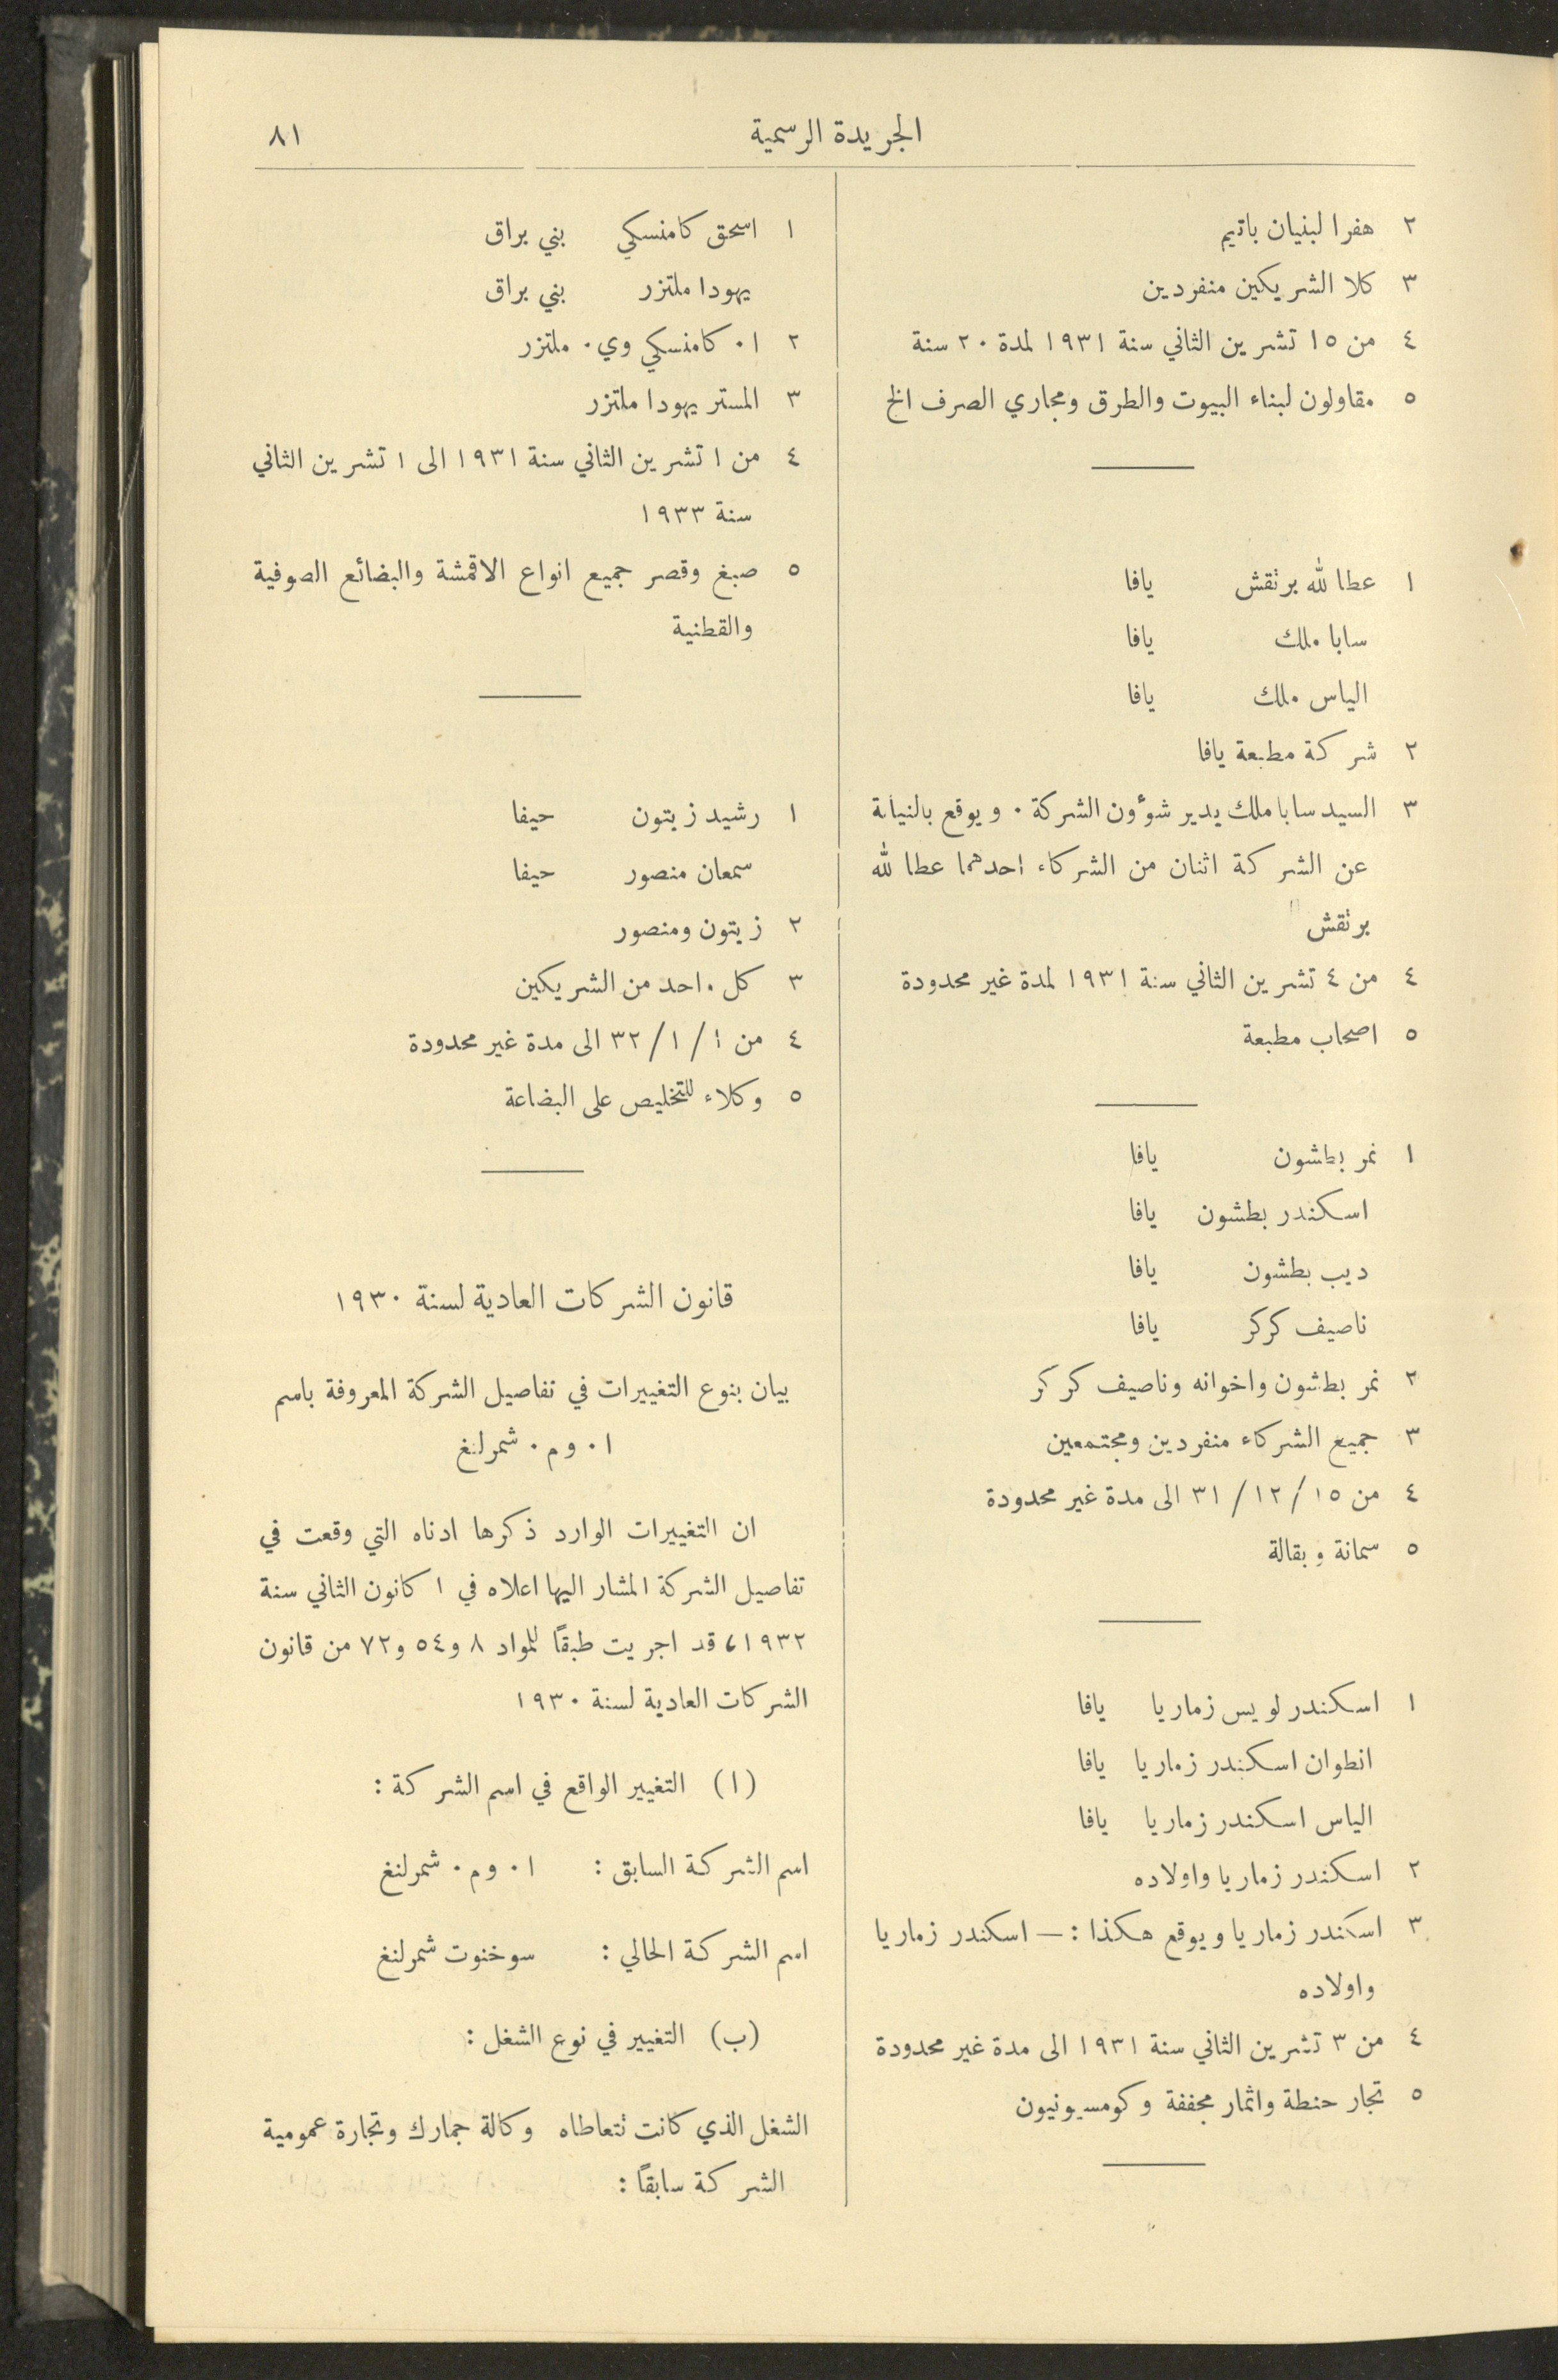 الجريدة الرسمية ٨١
٢ هفرا لبنيان باتيم
٣ كلا الشريكين منفردين
٤ من ١٥ تشرين الثاني سنة ١٩٣١ لمدة ٢٠ سنة
٥ مقاولون لبناء البيوت والطرق ومجاري الصرف الخ
١ عطا لله برتقش يافا
سابا ملك يافا
الياس ملك يافا
٢ شركة مطبعة يافا
٣ السيد سابا ملك يدير شوٴون الشركة ٠ ويوقع بالنيابة
عن الشركة اثنان من الشركاء احدهما عطا لله
برتقش
٤ من ٤ تشرين الثاني سنة ١٩٣١ لمدة غير محدودة
٥ اصحاب مطبعة
١ نمر بطشون يافا
اسكندر بطشون يافا
ديب بطشون يافا
ناصيف كركر يافا
٢ نمر بطشون واخوانه وناصيف كركر
٣ جميع الشركاء منفردين ومجتمعين
٤ من ١٥/ ١٢/ ٣١ الى مدة غير محدودة
٥ سمانة وبقالة
١ اسكندر لويس زماريا يافا
انطوان اسكندر زماريا يافا
الياس اسكندر زماريا يافا
٢ اسكندر زماريا واولاده
٣ اسكندر زماريا ويوقع هكذا : — اسكندر زماريا
واولاده
٤ من ٣ تشرين الثاني سنة ١٩٣١ الى مدة غير محدودة
٥ تجار حنطة واثمار مجففة وكومسيونيون
١ اسحق كامنسكي بني براق
يهودا ملتزر بني براق
٢ ا٠ كامنسكي وي٠ ملتزر
٣ المستر يهودا ملتزر
٤ من ١ تشرين الثاني سنة ١٩٣١ الى ١ تشرين الثاني
سنة ١٩٣٣
٥ صبغ وقصر جميع انواع الاقمشة والبضائع الصوفية
والقطنية
١ رشيد زيتون حيفا
سمعان منصور حيفا
٢ زيتون ومنصور
٣ كل واحد من الشريكين
٤ من ١/ ١/ ٣٢ الى مدة غير محدودة
٥ وكلاء للتخليص على البضاعة
قانون الشركات العادية لسنة ١٩٣٠
بيان بنوع التغييرات في تفاصيل الشركة المعروفة باسم
ا٠ و م٠ شمرلنغ
ان التغييرات الوارد ذكرها ادناه التي وقعت في
تفاصيل الشركة المشار اليها اعلاه في ١ كانون الثاني سنة
١٩٣٢، قد اجريت طبقاً للمواد ٨ و٥٤ و٧٢ من قانون
الشركات العادية لسنة ١٩٣٠
(ا) التغيير الواقع في اسم الشركة :
اسم الشركة السابق : ا٠ و م٠ شمرلنغ
اسم الشركة الحالي : سوخنوت شمرلنغ
(ب) التغيير في نوع الشغل :
الشغل الذي كانت تتعاطاه وكالة جمارك وتجارة عمومية
الشركة سابقاً :